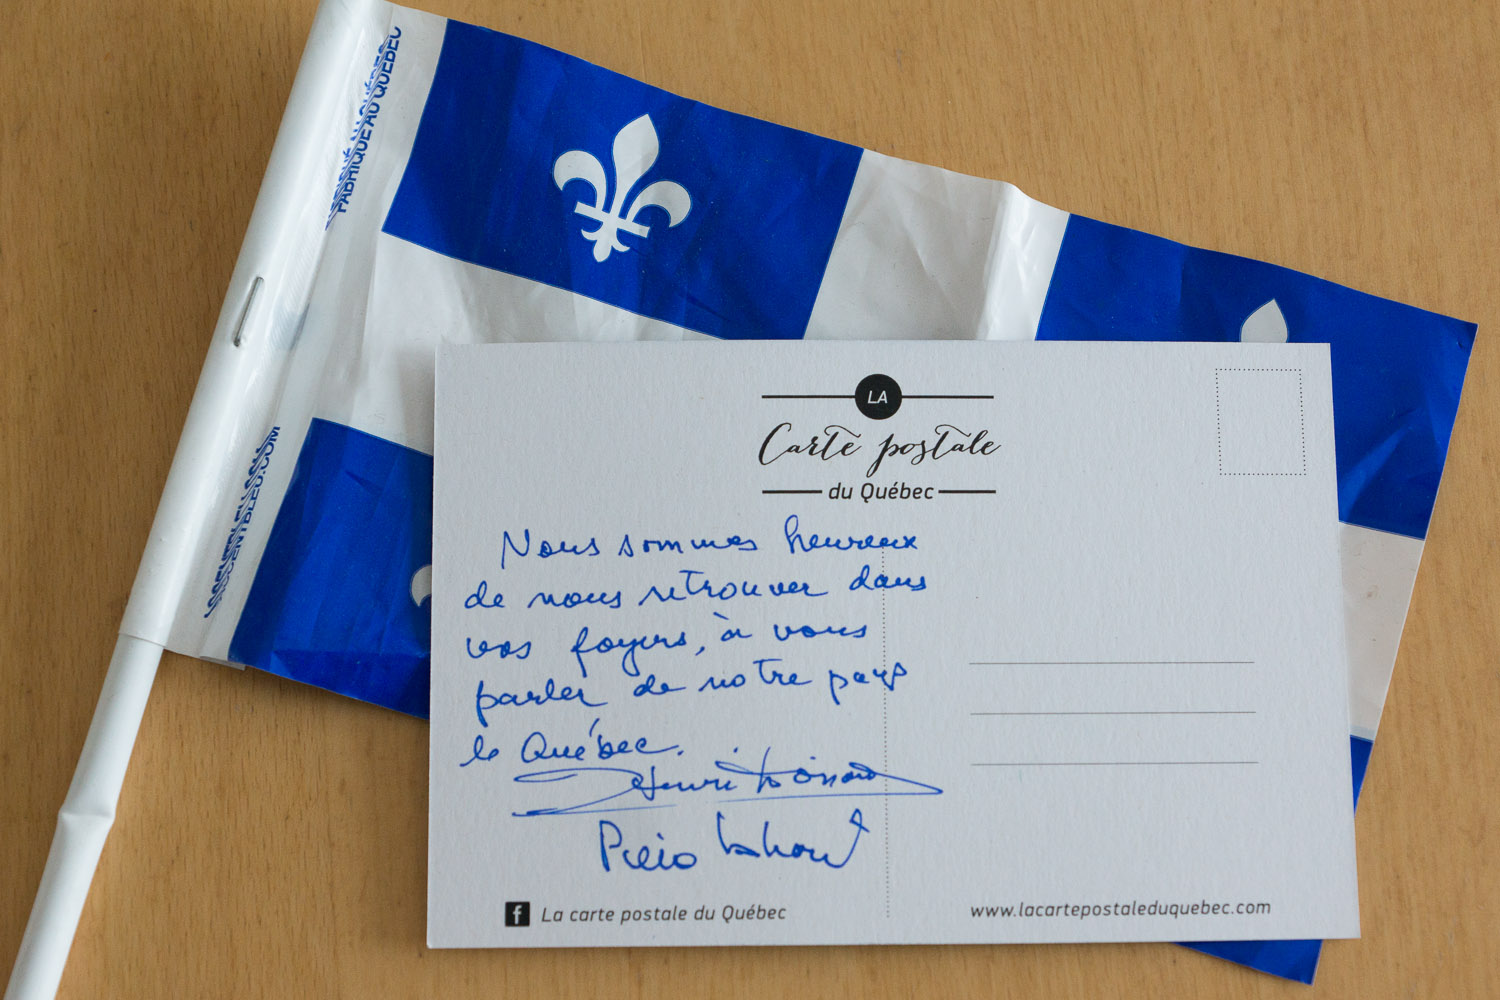 FABRIQUÉ AU QUÉBEC
LA
Carte postale
du Québec
Nous sommes heureux
de nous retrouver dans
vos foyers, à vous
parler de notre pays
le Québec.
Henri
www.lacartepostaleduquebec.com
La carte postale du Québec